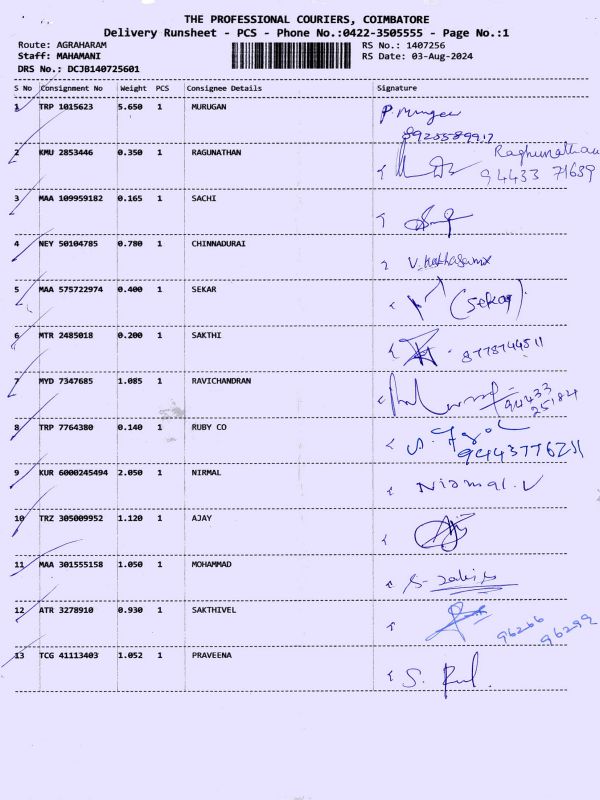 THE PROFESSIONAL COURIERS, COIMBATORE
Delivery Runsheet - PCS - Phone No.:0422-3505555 - Page No.:1
Route: AGRAHARAM RS No.: 1407256
Staff: MAHAMANI RS Date: 03-Aug-2024
DRS No.: DCJB140725601
S No Consignment No Weight PCS Consignee Details Signature
1 TRP 1015623 5.650 1 MURUGAN
2 KMU 2853446 0.350 1 RAGUNATHAN Raghunathan
94433 71639
3 MAA 109959182 0.165 1 SACHI
4 NEY 50104785 0.780 1 CHINNADURAI
5 MAA 575722974 0.400 1 SEKAR (Sekar)
6 MTR 2485018 0.200 1 SAKTHI 8778744511
7 MYD 7347685 1.085 1 RAVICHANDRAN 94433
25184
8 TRP 7764380 0.140 1 RUBY CO
9443776211
9 KUR 6000245494 2.050 1 NIRMAL Nirmal.V
10 TRZ 305009952 1.120 1 AJAY
11 MAA 301555158 1.050 1 MOHAMMAD
12 ATR 3278910 0.930 1 SAKTHIVEL 96266
96299
13 TCG 41113403 1.052 1 PRAVEENA